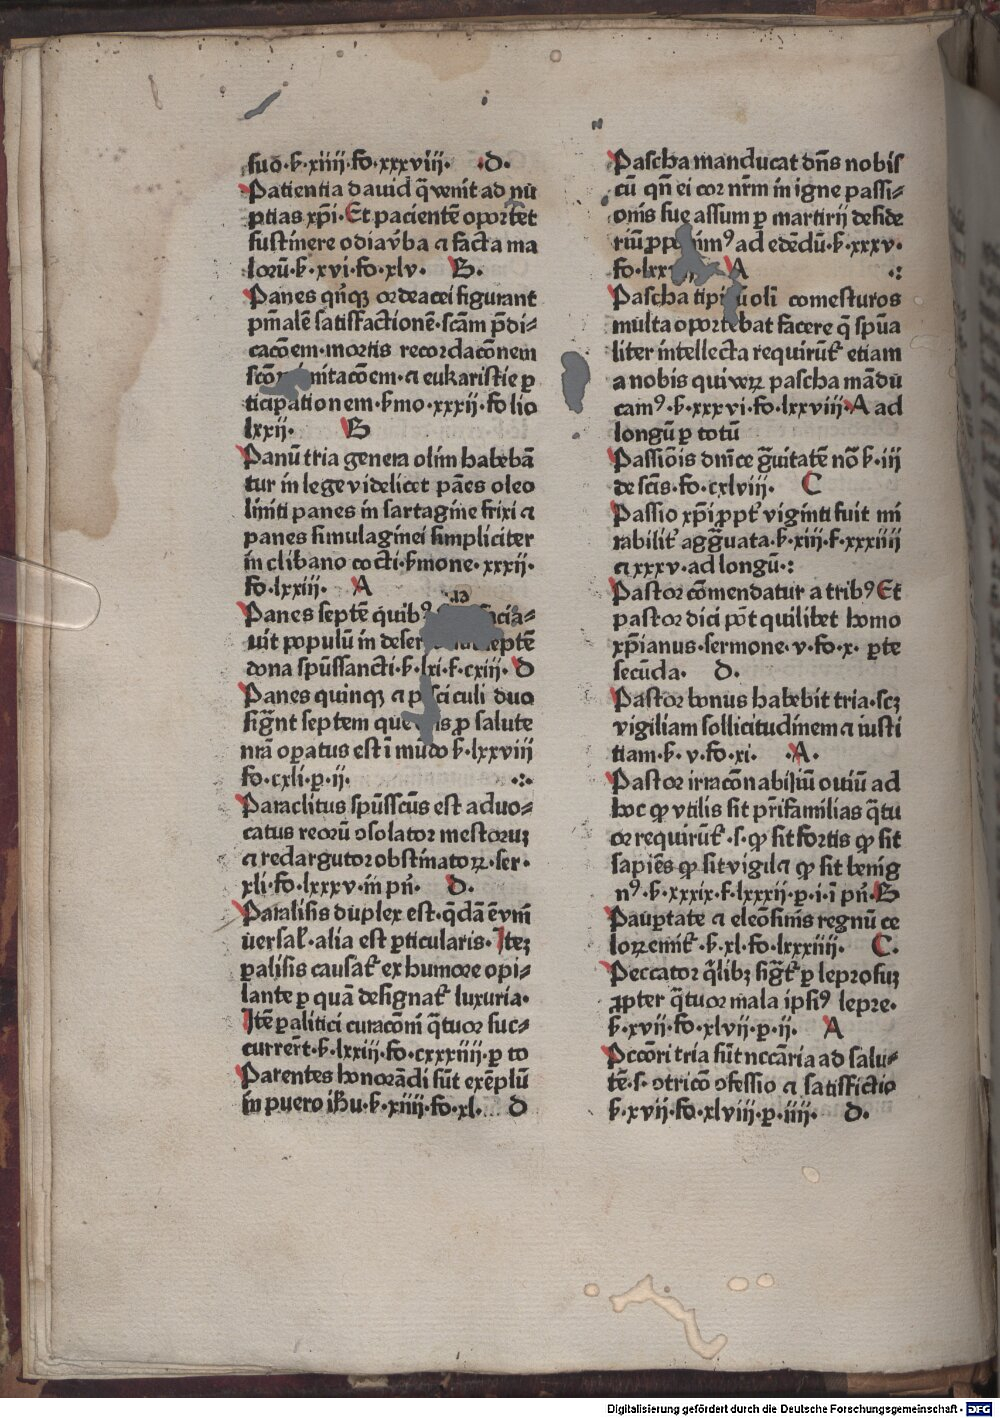 suō·ẜ·xiiij·fo·xxxviij· ·D·
Patientia dauid q̄ venit ad nū
ꝑtias xp̄i·Et pacientē oportet
sustinere odia v̄ba ⁊ facta ma
lorū·ẜ·xvi·fo·xlv· B·
Panes qn̄qꝫ ordeacei figurant
pm̄alē satisfactionē·scām p̄di⸗
cacōem·mortis recordacōnem
imitacōem·⁊ eukaristie ꝑ
ticipationem·ẜmo·xxxij·folio
lxxij· B
Panū tria genera olim habebā
tur in lege videlicet pāes oleo
liniti panes in sartagine frixi ⁊
panes simulaginei simpliciter
in clibano cocti·ẜmone·xxxij·
fo·lxxiij· A
Panes septē quibꝰ
uit populū in septē
dona spūssancti·ẜ·lxi·f·cxiij·D
Panes quinqꝫ ⁊ pisciculi duo
sign̄t septem ꝓ salute
nrā oꝑatus est ī mūdo ẜ·lxxviij
fo·cxli·ꝑ·ij· ·:·
Paraclitus spūsscūs est aduo⸗
catus reorū ↄsolator mestoruꝫ
⁊ redargutor obstinatoꝝ·ser·
xli·fo·lxxxv·in pn̄· D·
Paralisis duplex est·q̄dā ē vni
uersal̕·alia est ꝑticularis·Iteꝫ
ꝑalisis causat᷑ ex humore opi⸗
lante ꝑ quā designat᷑ luxuria·
Itē ꝑalitici curacōni q̄tuor suc⸗
currēt·ẜ·lxxiij·fo·cxxxiiij·ꝑ to
Parentes honorādi sūt exēplū
in puero ihū·ẜ·xiiij·fo·xl· D
Pascha manducat dn̄s nobis
cū qn̄ ei cor nrm̄ in igne passi⸗
onis sue assum ꝑ martirij deside
riū ad edēdū·ẜ·xxxv·
A ·:
Pascha oli comesturos
multa oportebat facere q̄ spūa
liter intellecta requirūt᷑ etiam
a nobis qui veꝝ pascha mādu
camꝰ·ẜ·xxxvi·fo·lxxviij·A ad
longū ꝑ totū
Passiōis dnīce gͣuitatē nō ẜ·iij
de scīs·fo·cxlviij· C
Passio xp̄i ꝓpt̕ viginti fuit mi
rabilit̕ aggͣuata·ẜ·xiij·f·xxxiiij
⁊ xxxv·ad longū·:
Pastor cōmendatur a tribꝰ Et
pastor dici pōt quilibet homo
xp̄ianus·sermone·v·fo·x· ꝑte
secūda· D·
Pastor bonus habebit tria·scꝫ
vigiliam sollicitudinem ⁊ iusti
tiam·ẜ·v·fo·xi· ·A·
Pastor irracōnabiliū ouiū ad
hoc ꝙ vtilis sit pr̄ifamilias q̄tu
or requirūt᷑·s·ꝙ sit fortis ꝙ sit
sapiēs ꝙ sit vigil ⁊ ꝙ sit benig
nꝰ·ẜ·xxxix·f·lxxxij·ꝑ·i·ī pn̄·B
Pauꝑtate ⁊ eleōsinis regnū ce
loꝝ emit᷑·ẜ·xl·fo·lxxxiiij· C·
Peccator q̄libꝫ sigt̄᷑ ꝑ leprosuꝫ
ꝓpter q̄tuor mala ipsiꝰ lepre·
ẜ·xvij·fo·xlvij·ꝑ·ij· A
Pccōri tria sūt nccāria ad salu⸗
tē·s·ↄtricō ↄfessio ⁊ satisfictio
ẜ·xvij·fo·xlviij·ꝑ·iiij· D·
Digitalisierung gefördert durch die Deutsche Forschungsgemeinschaft - DFG